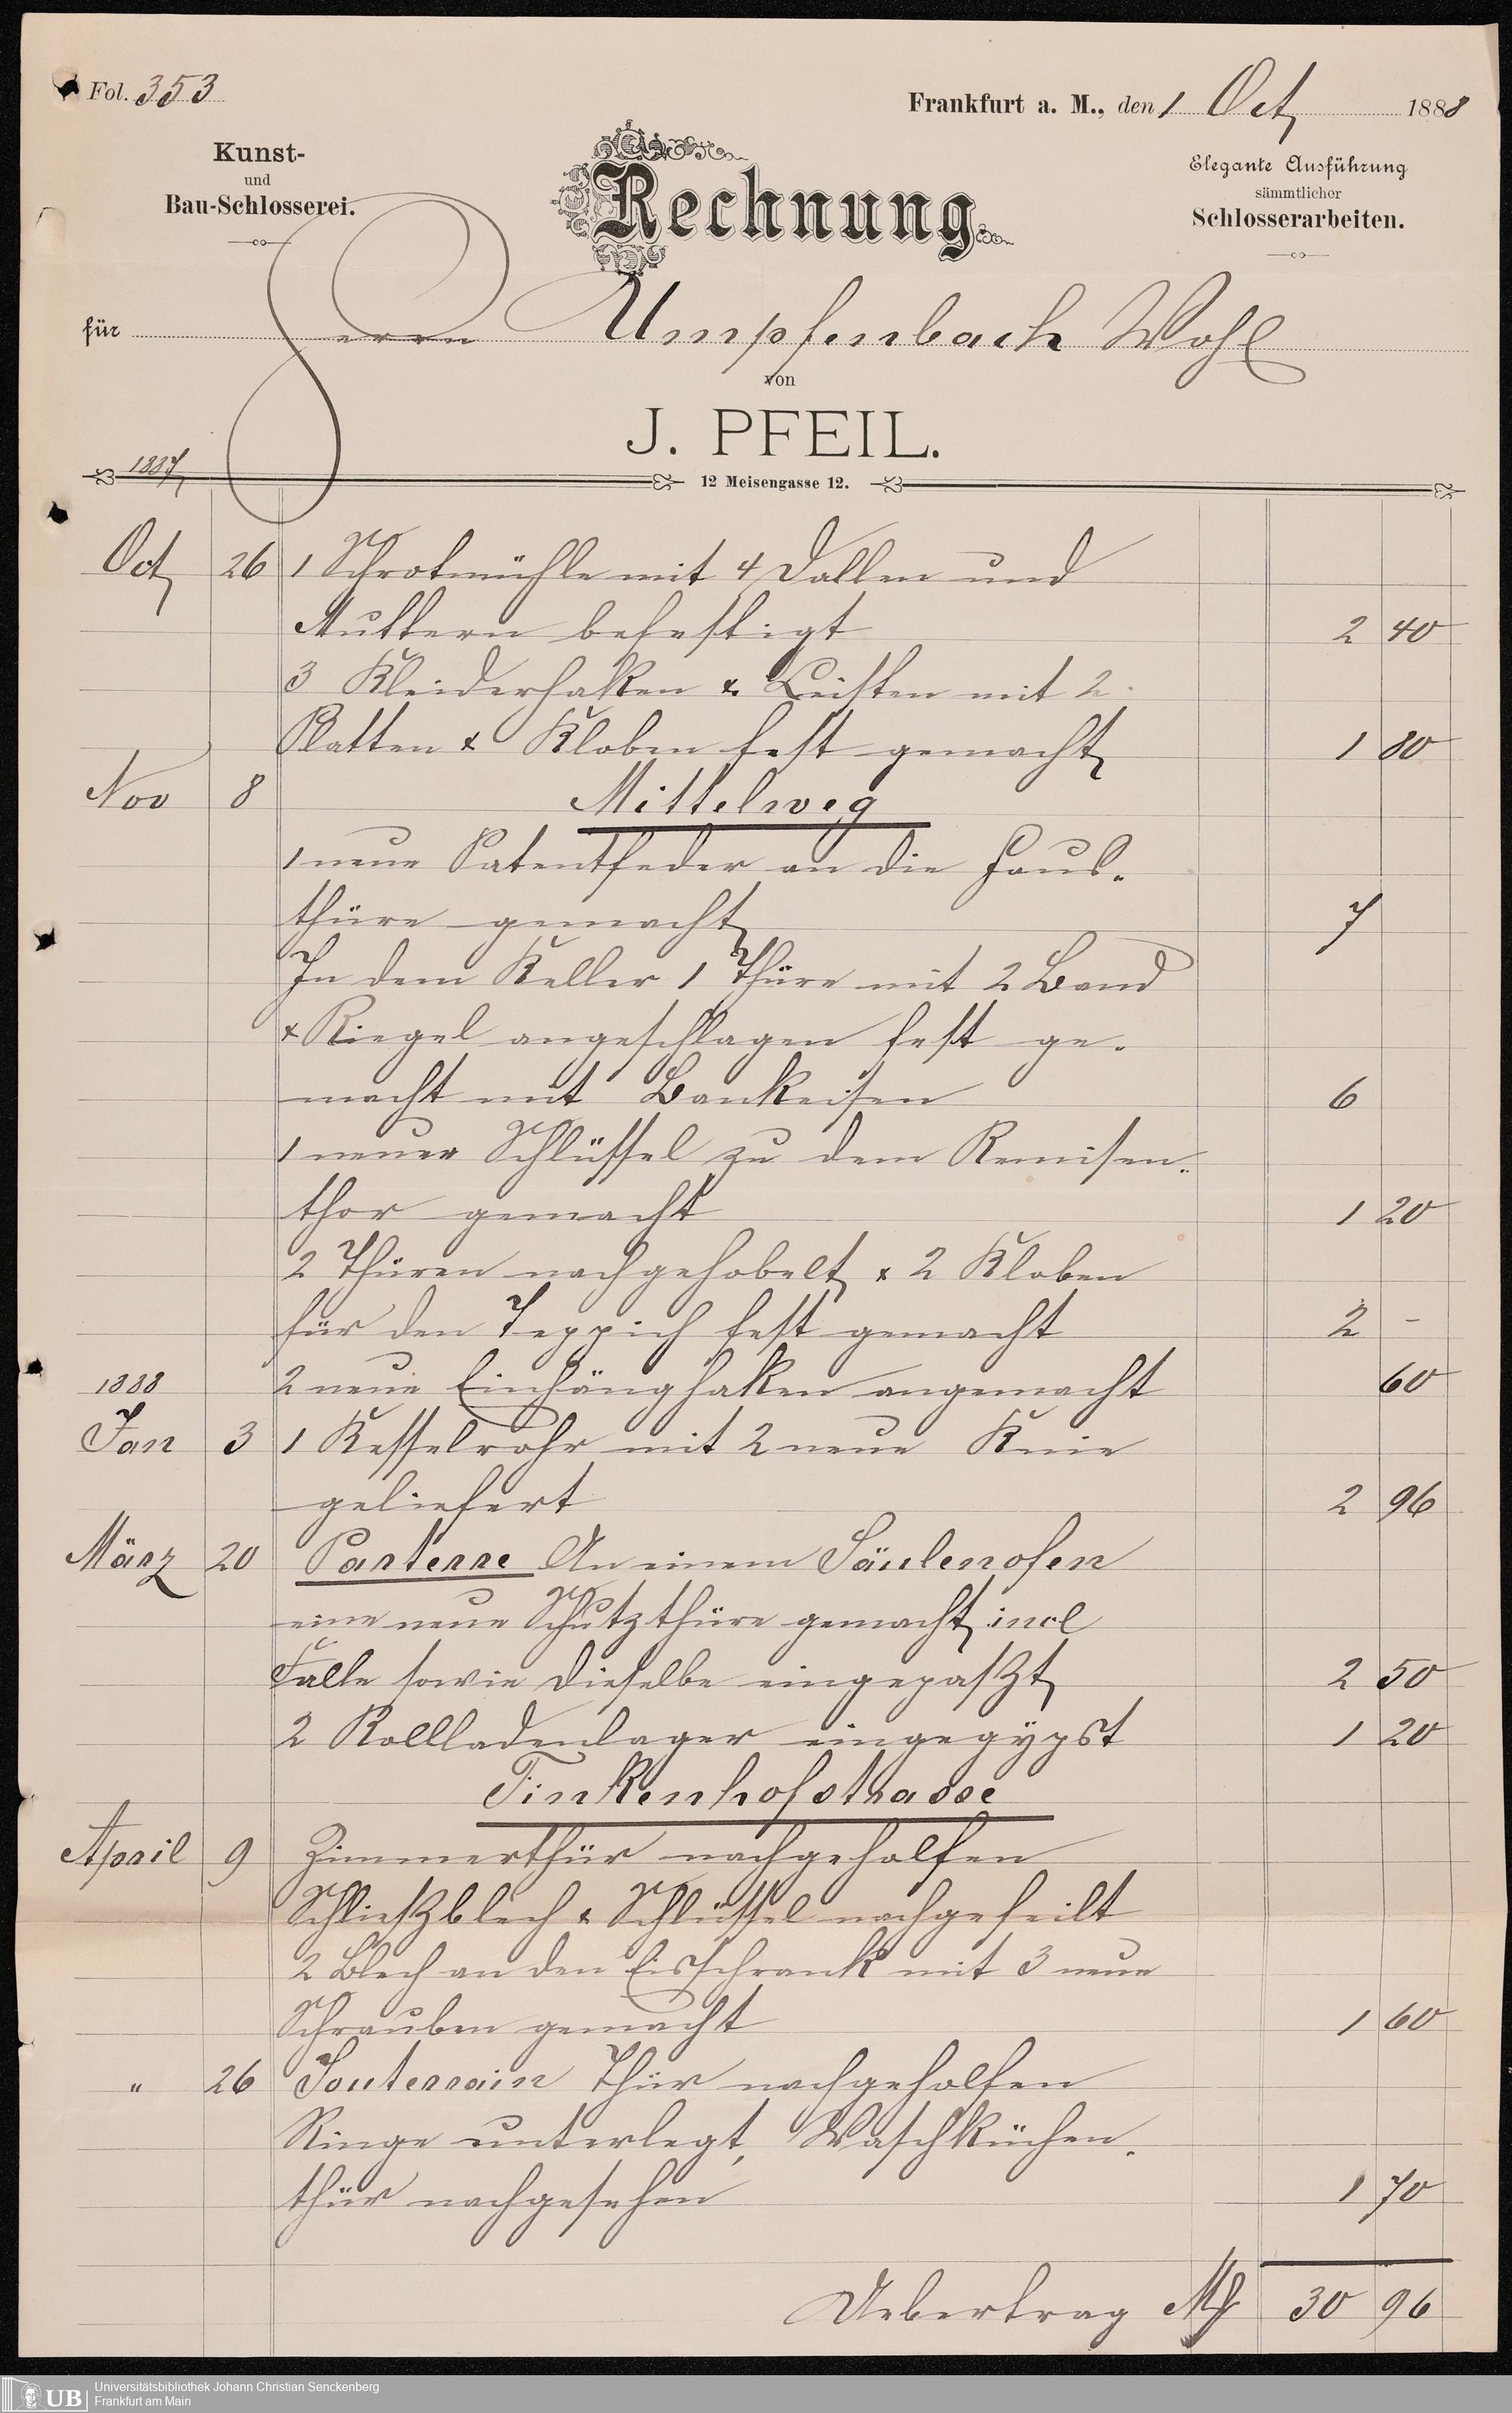 Fol. 353
Frankfurt a. M., den 1 Oct 1888
Kunst-
und
Bau-Schlosserei.
Rechnung
Elegante Ausführung
sämmtlicher
Schlosserarbeiten.
für Herrn Umpfenbach Wohl
von
J. PFEIL.
1887
12 Meisengasse 12.
Oct 26 1 Schrotmühle mit 4 Dollen und
Muttern befestigt 2 40
3 Kleiderhaken & Leisten mit 2
Platten & Kloben fest gemacht 1 80
Nov 8 Mittelweg
1 neue Patentfeder an die Haus-
thüre gemacht 7
In dem Keller 1 Thüre mit 2 Band
& Riegel angeschlagen fest ge-
macht mit Bankeisen 6
1 neuer Schlüssel zu dem Remisen-
thor gemacht 1 20
2 Thüren nachgehobelt & 2 Kloben
für den Teppich fest gemacht 2 -
1888 2 neue Einhänghaken angemacht 60
Jan 3 1 Kesselrohr mit 2 neue Knie
geliefert 2 96
März 20 Parterre An einem Säulenofen
eine neue Schutzthüre gemacht incl
Falle sowie dieselbe eingepaßt 2 50
2 Rollladenlager eingegypst 1 20
Finkenhofstrasse
April 9 Zimmerthür nachgeholfen
Schließblech & Schlüssel nachgefeilt
2 Blech an den Eisschrank mit 3 neue
Schrauben gemacht 1 60
" 26 Souterrain Thür nachgeholfen
Ringe unterlegt, Waschküchen-
thür nachgesehen 1 70
Uebertrag M 30 96
UB
Universitätsbibliothek Johann Christian Senckenberg
Frankfurt am Main